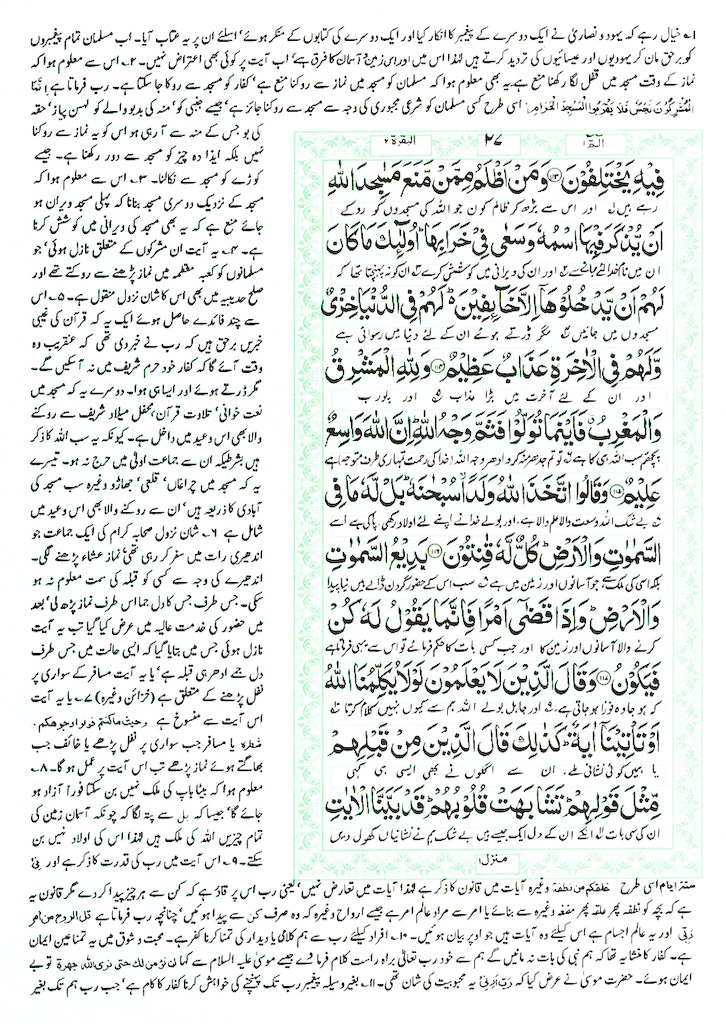 ۱؎ خیال رہے کہ یہود و نصاریٰ نے ایک دوسرے کے پیغمبر کا انکار کیا اور ایک دوسرے کی کتابوں کے منکر ہوئے' اسلئے ان پر یہ عتاب آیا۔ اب مسلمان تمام پیغمبروں
کو برحق مان کر یہودیوں اور عیسائیوں کی تردید کرتے ہیں لہٰذا اس میں اور اس میں زمین و آسمان کا فرق ہے' اب آیت پر کوئی بھی اعتراض نہیں۔ ۲؎ اس سے معلوم ہوا کہ
نماز کے وقت مسجد میں قفل لگا رکھنا منع ہے یہ بھی معلوم ہوا کہ مسلمان کو مسجد میں نماز سے روکنا منع ہے' کفار کو مسجد سے روکا جا سکتا ہے۔ رب فرماتا ہے اِنَّمَا
الْمُشْرِكُوْنَ نَجَسٌ فَلَا يَقْرَبُوا الْمَسْجِدَ الْحَرَامَ اسی طرح کسی مسلمان کو شرعی مجبوری کی وجہ سے مسجد سے روکنا جائز ہے' جیسے جنبی کو' منہ کی بدبو والے کو لہسن پیاز' حقہ
کی بو جس کے منہ سے آ رہی ہو اس کو یہ نماز سے روکنا
نہیں بلکہ ایذا دہ چیز کو مسجد سے دور رکھنا ہے۔ جیسے
کوڑے کو مسجد سے نکالنا۔ ۳؎ اس سے معلوم ہوا کہ
مسجد کے نزدیک دوسری مسجد بنانا کہ پہلی مسجد ویران ہو
جائے منع ہے کہ یہ بھی مسجد کی ویرانی میں کوشش کرنا
ہے۔ ۴؎ یہ آیت ان مشرکوں کے متعلق نازل ہوئی' جو
مسلمانوں کو کعبہ معظمہ میں نماز پڑھنے سے روکتے تھے اور
صلح حدیبیہ میں بھی اس کا شان نزول منقول ہے۔ ۵؎ اس
سے چند فائدے حاصل ہوئے ایک یہ کہ قرآن کی غیبی
خبریں برحق ہیں کہ رب نے خبر دی تھی کہ عنقریب وہ
وقت آئے گا کہ کفار خود حرم شریف میں نہ آ سکیں گے۔
مگر ڈرتے ہوئے اور ایسا ہی ہوا۔ دوسرے یہ کہ مسجد میں
نعت خوانی' تلاوت قرآن' محفل میلاد شریف سے روکنے
والا بھی اس وعید میں داخل ہے۔ کیونکہ یہ سب اللہ کا ذکر
ہیں بشرطیکہ ان سے جماعت اولیٰ میں حرج نہ ہو۔ تیسرے
یہ کہ مسجد میں چراغاں' قلعی' جھاڑو وغیرہ سب مسجد کی
آبادی کا ذریعہ ہیں' ان سے روکنے والا بھی اس وعید میں
شامل ہے ۶؎ شان نزول صحابہ کرام کی ایک جماعت جو
اندھیری رات میں سفر کر رہی تھی' نماز عشاء پڑھنے لگی۔
اندھیرے کی وجہ سے کسی کو قبلہ کی سمت معلوم نہ ہو
سکی۔ جس طرف جس کا دل جما اس طرف نماز پڑھ لی' بعد
میں حضور کی خدمت عالیہ میں عرض کیا گیا تب یہ آیت
نازل ہوئی جس میں بتایا گیا کہ ایسی حالت میں جس طرف
دل جمے ادھر ہی قبلہ ہے' یا یہ آیت مسافر کے سواری پر
نفل پڑھنے کے متعلق ہے (خزائن وغیرہ) ۷؎ یا یہ آیت
اس آیت سے منسوخ ہے وحیث ماکنتم فولوا وجوھکم
شطرہ یا مسافر جب سواری پر نفل پڑھے یا خائف جب
بھاگتے ہوئے نماز پڑھے تب اس آیت پر عمل ہو گا۔ ۸؎
معلوم ہوا کہ بیٹا باپ کی ملک نہیں بن سکتا فوراً آزاد ہو
جائے گا' جیسا کہ بل سے پتہ لگا کہ چونکہ آسمان زمین کی
تمام چیزیں اللہ کی ملک ہیں لہٰذا اس کی اولاد نہیں بن
سکتے۔ ۹؎ اس آیت میں رب کی قدرت کا ذکر ہے اور فی
الٓمّٓ ۱
۲۷
البقرۃ ۲
فِيْهِ يَخْتَلِفُوْنَ ﴿۱۱۳﴾ وَمَنْ اَظْلَمُ مِمَّنْ مَّنَعَ مَسٰجِدَ اللّٰهِ
رہے ہیں اور اس سے بڑھ کر ظالم کون جو اللہ کی مسجدوں کو روکے
اَنْ يُّذْكَرَ فِيْهَا اسْمُهٗ وَسَعٰى فِيْ خَرَابِهَا ؕ اُولٰٓئِكَ مَا كَانَ
ان میں نام خدا لئے جانے سے اور ان کی ویرانی میں کوشش کرے ان کو نہ پہنچتا تھا کہ
لَهُمْ اَنْ يَّدْخُلُوْهَآ اِلَّا خَآئِفِيْنَ ؕ لَهُمْ فِي الدُّنْيَا خِزْيٌ
مسجدوں میں جائیں مگر ڈرتے ہوئے ان کے لئے دنیا میں رسوائی ہے
وَّلَهُمْ فِي الْاٰخِرَةِ عَذَابٌ عَظِيْمٌ ﴿۱۱۴﴾ وَلِلّٰهِ الْمَشْرِقُ
اور ان کے لئے آخرت میں بڑا عذاب اور پورب
وَالْمَغْرِبُ ۗ فَاَيْنَمَا تُوَلُّوْا فَثَمَّ وَجْهُ اللّٰهِ ؕ اِنَّ اللّٰهَ وَاسِعٌ
پچھم سب اللہ ہی کا ہے تو تم جدھر منہ کرو ادھر وجہ اللہ (خدا کی رحمت تمہاری طرف متوجہ) ہے
عَلِيْمٌ ﴿۱۱۵﴾ وَقَالُوا اتَّخَذَ اللّٰهُ وَلَدًا ۙ سُبْحٰنَهٗ ؕ بَلْ لَّهٗ مَا فِي
بے شک اللہ وسعت والا علم والا ہے، اور بولے خدا نے اپنے لئے اولاد رکھی پاکی ہے اسے
السَّمٰوٰتِ وَالْاَرْضِ ؕ كُلٌّ لَّهٗ قٰنِتُوْنَ ﴿۱۱۶﴾ بَدِيْعُ السَّمٰوٰتِ
بلکہ اسی کی ملک ہے جو آسمانوں اور زمین میں ہے سب اس کے حضور گردن ڈالے ہیں نیا پیدا
وَالْاَرْضِ ؕ وَاِذَا قَضٰٓى اَمْرًا فَاِنَّمَا يَقُوْلُ لَهٗ كُنْ
کرنے والا آسمانوں اور زمین کا اور جب کسی بات کا حکم فرمائے تو اس سے یہی فرماتا ہے
فَيَكُوْنُ ﴿۱۱۷﴾ وَقَالَ الَّذِيْنَ لَا يَعْلَمُوْنَ لَوْلَا يُكَلِّمُنَا اللّٰهُ
کہ ہو جا وہ فوراً ہو جاتی ہے اور جاہل بولے اللہ ہم سے کیوں نہیں کلام کرتا
اَوْ تَاْتِيْنَآ اٰيَةٌ ؕ كَذٰلِكَ قَالَ الَّذِيْنَ مِنْ قَبْلِهِمْ
یا ہمیں کوئی نشانی ملے ان سے اگلوں نے بھی ایسی ہی کہی
مِّثْلَ قَوْلِهِمْ ؕ تَشَابَهَتْ قُلُوْبُهُمْ ؕ قَدْ بَيَّنَّا الْاٰيٰتِ
ان کی سی بات ان کے ان کے دل ایک جیسے ہیں بے شک ہم نے نشانیاں کھول دیں
منزل ۱
ستۃ ایام اسی طرح خلقکم من نطفۃ وغیرہ آیات میں قانون کا ذکر ہے لہٰذا آیات میں تعارض نہیں' یعنی رب اس پر قادر ہے کہ کن سے ہر چیز پیدا کر دے مگر قانون یہ
ہے کہ بچہ کو نطفہ پھر علقہ پھر مضغہ وغیرہ سے بنائے یا امر سے مراد عالم امر ہے جیسے ارواح وغیرہ کہ وہ صرف کن سے پیدا ہوئیں' چنانچہ رب فرماتا ہے قل الروح من امر
ربی اور یہ عالم اجسام ہے اس کیلئے وہ آیات ہیں جو اوپر بیان ہوئیں۔ ۱۰؎ افراد کیلئے رب سے ہم کلامی یا دیدار کی تمنا کرنا کفر ہے۔ محبت و شوق میں یہ تمنا عین ایمان
ہے۔ کفار کا منشا یہ تھا کہ ہم نبی کی بات نہ مانیں گے ہم سے خود رب تعالیٰ براہ راست کلام فرما دے جیسے موسیٰ علیہ السلام سے کہا لن نؤمن لک حتی نری اللہ جھرۃ تو بے
ایمان ہوئے۔ حضرت موسیٰ نے عرض کیا کہ رب ارنی' یہ محبوبیت کی شان تھی۔ ۱۱؎ بغیر وسیلہ پیغمبر رب تک پہنچنے کی خواہش کرنا کفار کا کام ہے' جب رب ہم تک بغیر